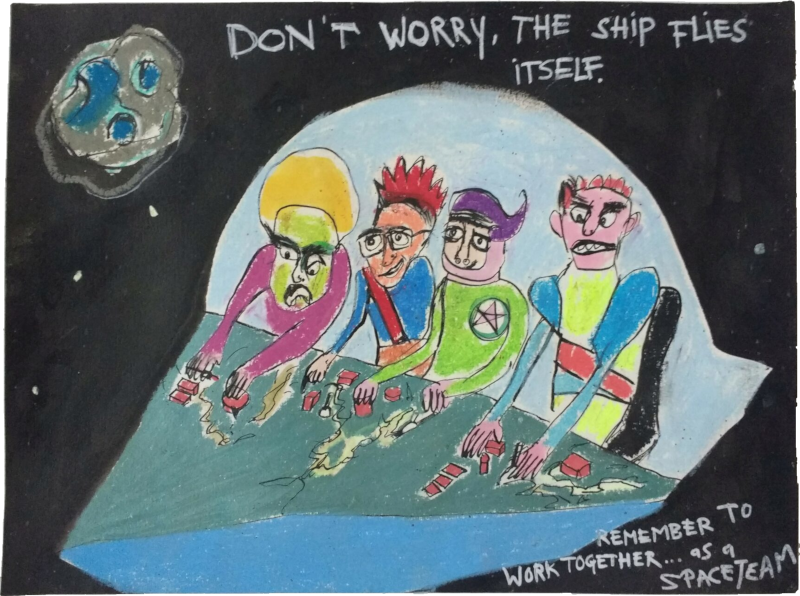 DON'T WORRY, THE SHIP FLIES
ITSELF.
REMEMBER TO
WORK TOGETHER... as a
SPACETEAM